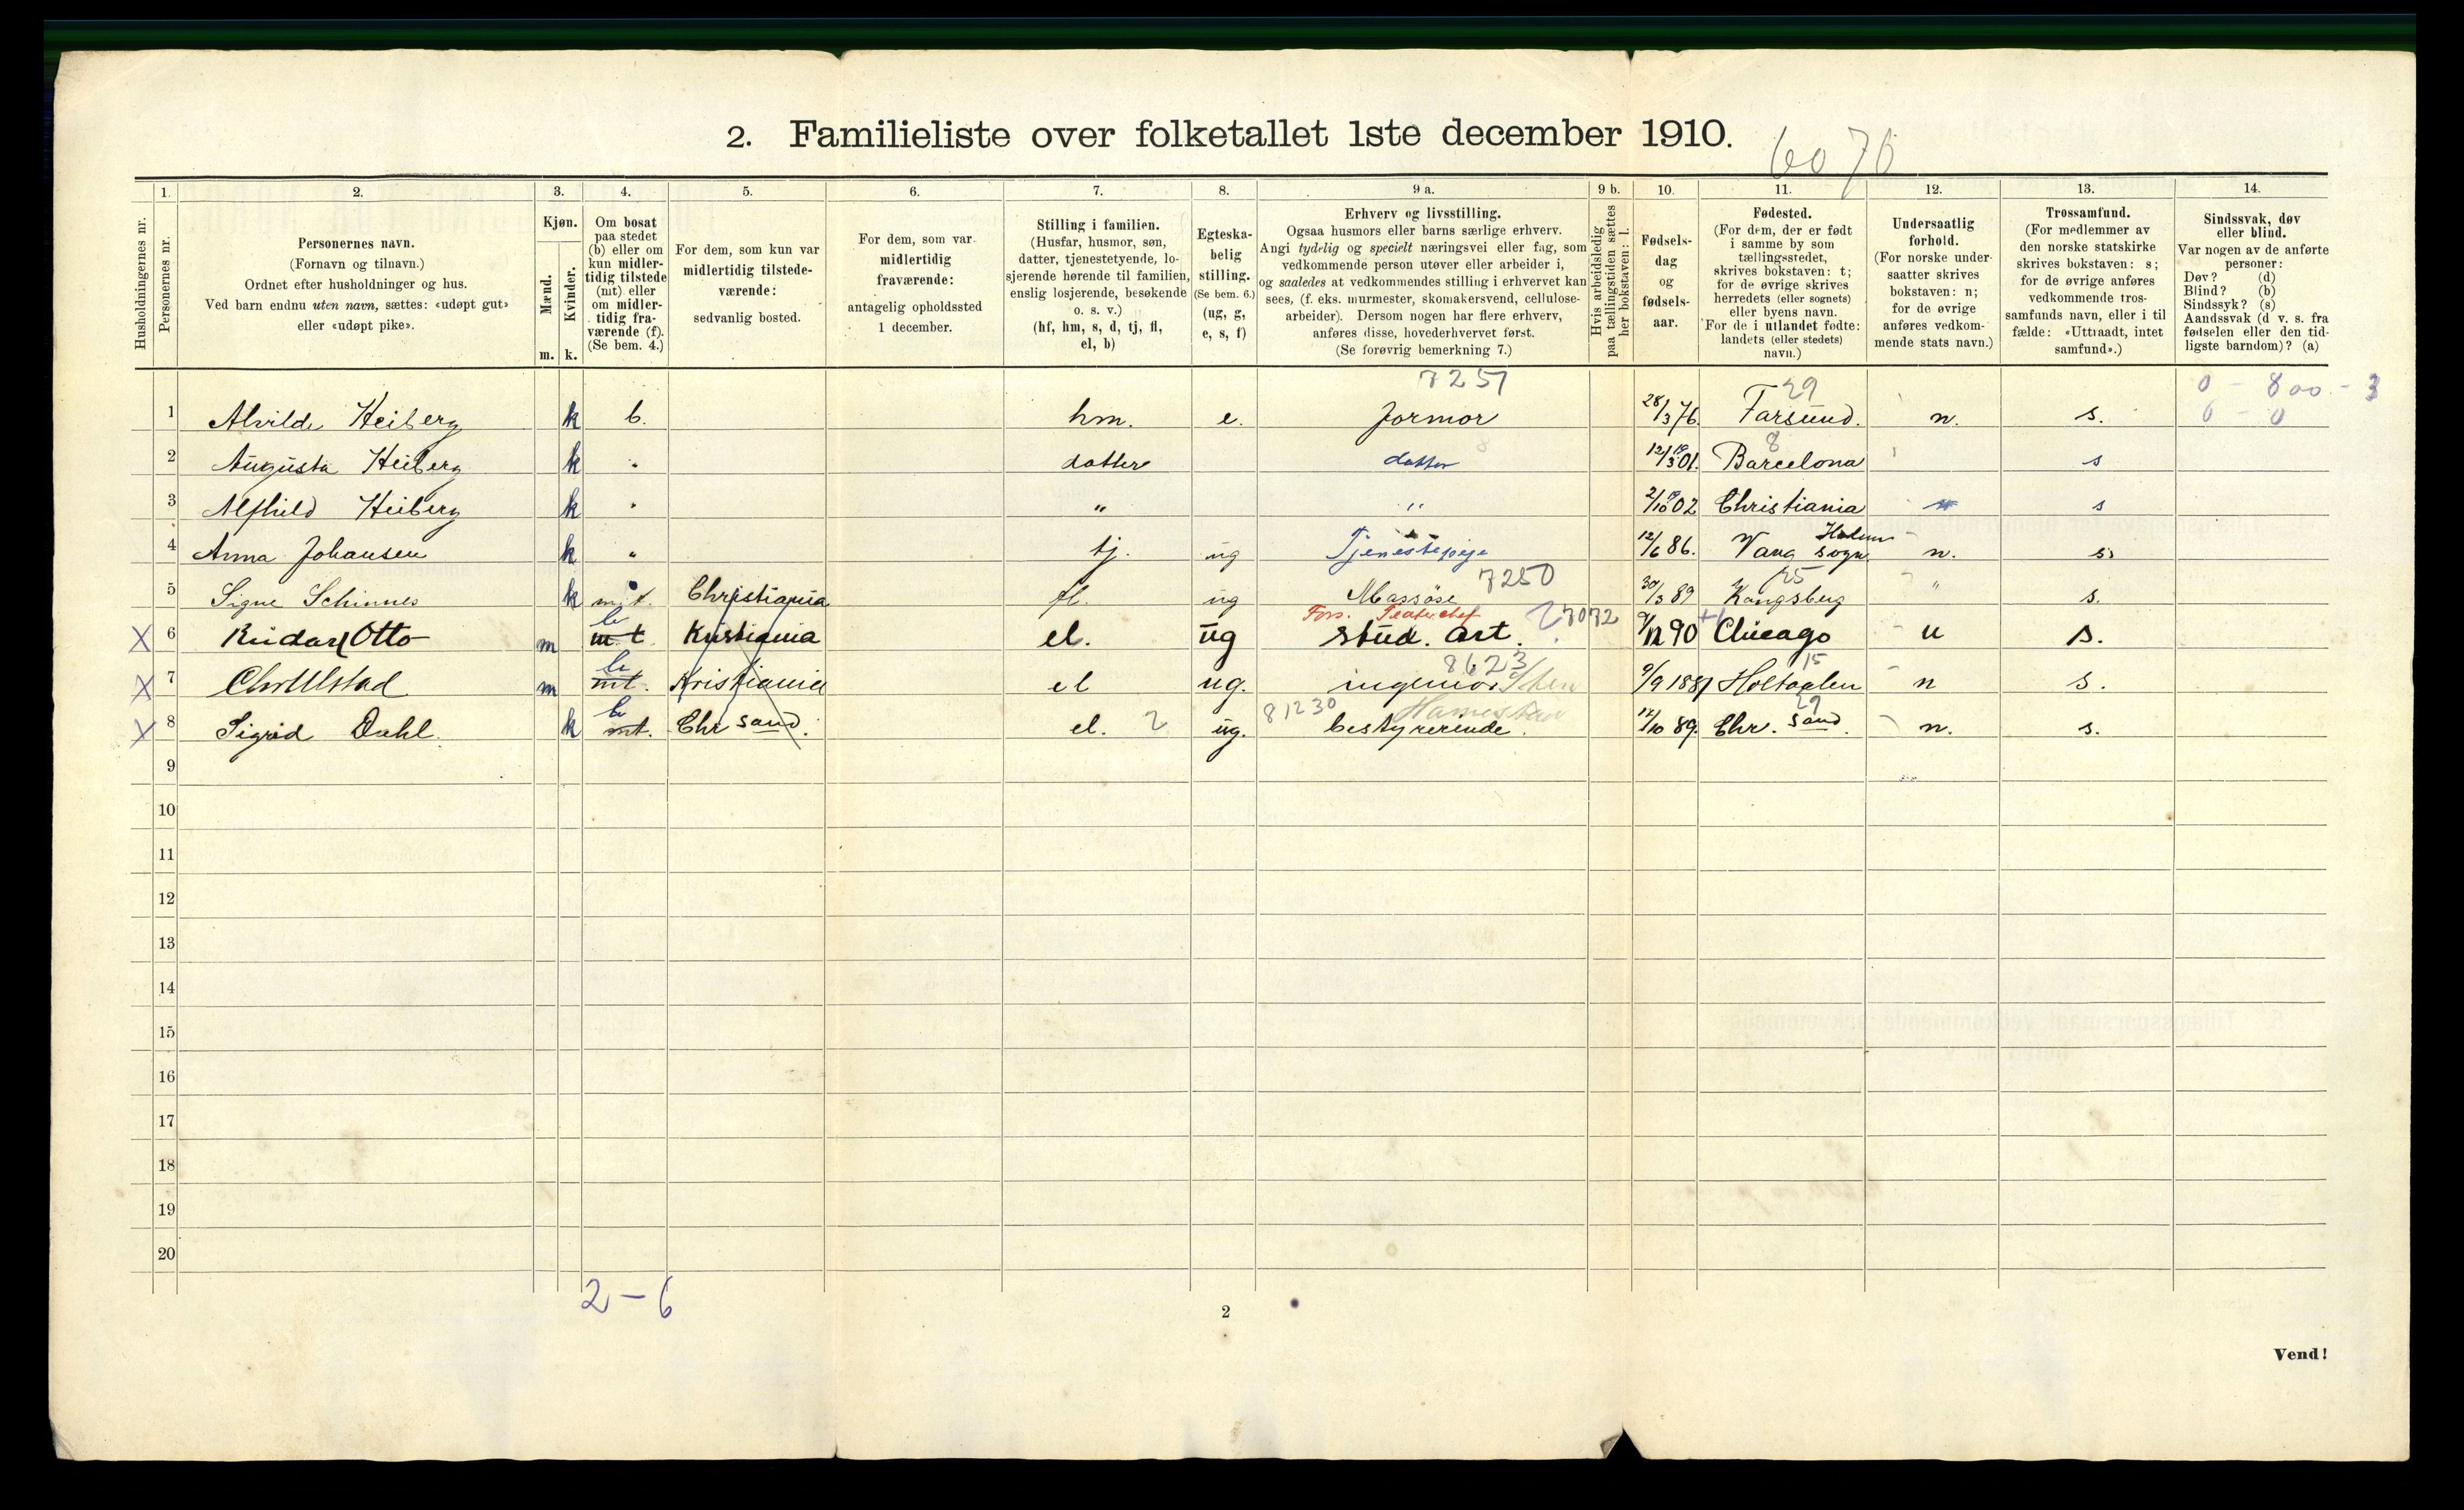 2. Familieliste over folketallet 1ste december 1910.
6070
1. 2. 3. 4. 5. 6. 7. 8. 9 a. 9 b. 10. 11. 12. 13. 14.
Husholdningernes nr.
Personernes nr.
Personernes navn.
(Fornavn og tilnavn.)
Ordnet efter husholdninger og hus.
Ved barn endnu uten navn, sættes: «udøpt gut»
eller «udøpt pike».
Kjøn.
Mænd.
Kvinder.
m. k.
Om bosat
paa stedet
(b) eller om
kun midler-
tidig tilstede
(mt) eller
om midler-
tidig fra-
værende (f).
(Se bem. 4.)
For dem, som kun var
midlertidig tilstede-
værende:
sedvanlig bosted.
For dem, som var
midlertidig
fraværende:
antagelig opholdssted
1 december.
Stilling i familien.
(Husfar, husmor, søn,
datter, tjenestetyende, lo-
sjerende hørende til familien,
enslig losjerende, besøkende
o. s. v.)
(hf, hm, s, d, tj, fl,
el, b)
Egteska-
belig
stilling.
(Se bem. 6.)
(ug, g,
e, s, f)
Erhverv og livsstilling.
Ogsaa husmors eller barns særlige erhverv.
Angi tydelig og specielt næringsvei eller fag, som
vedkommende person utøver eller arbeider i,
og saaledes at vedkommendes stilling i erhvervet kan
sees, (f. eks. murmester, skomakersvend, cellulose-
arbeider). Dersom nogen har flere erhverv,
anføres disse, hovederhvervet først.
(Se forøvrig bemerkning 7.)
Hvis arbeidsledig
paa tællingstiden sættes
her bokstaven: l.
Fødsels-
dag
og
fødsels-
aar.
Fødested.
(For dem, der er født
i samme by som
tællingsstedet,
skrives bokstaven: t;
for de øvrige skrives
herredets (eller sognets)
eller byens navn.
For de i utlandet fødte:
landets (eller stedets)
navn.)
Undersaatlig
forhold.
(For norske under-
saatter skrives
bokstaven: n;
for de øvrige
anføres vedkom-
mende stats navn.)
Trossamfund.
(For medlemmer av
den norske statskirke
skrives bokstaven: s;
for de øvrige anføres
vedkommende tros-
samfunds navn, eller i til
fælde: «Uttraadt, intet
samfund».)
Sindssvak, døv
eller blind.
Var nogen av de anførte
personer:
Døv? (d)
Blind? (b)
Sindssyk? (s)
Aandssvak (d v. s. fra
fødselen eller den tid-
ligste barndom)? (a)
7251 29 0 - 800 - 3
1 Alvilde Heiberg k b. hm. e. Jormor 28/3 76. Farsund. n. s. 0 - 0
8
2 Augusta Heiberg k " datter datter 12/3 1901. Barcelona s
3 Alfhild Heiberg k " " " 2/10 1902 Christiania n s
4 Anna Johansen k " tj. ug Tjenestepige 12/6 86. Vang sogn Hamar n. s.
7250 25
5 Signe Schinnes k m.t. Christiania fl. ug Massøse 30/3 89 Kongsberg " s.
b Fors. Teaterchef 27072
X 6 Otto m mt Kristiania el. ug stud. art. 9/12 90 Chicago u s.
b 8623 15
X 7 Chr Ulstad m mt. Kristiania el ug. ingeniør 9/9 1881 Holtaalen n s.
b 81230 29
X 8 Sigrid Dahl k mt. Chr sand. el. 2 ug. bestyrerinde. 12/10 89. Chr. sand. n. s.
9
10
11
12
13
14
15
16
17
18
19
20
2-6
2
Vend!